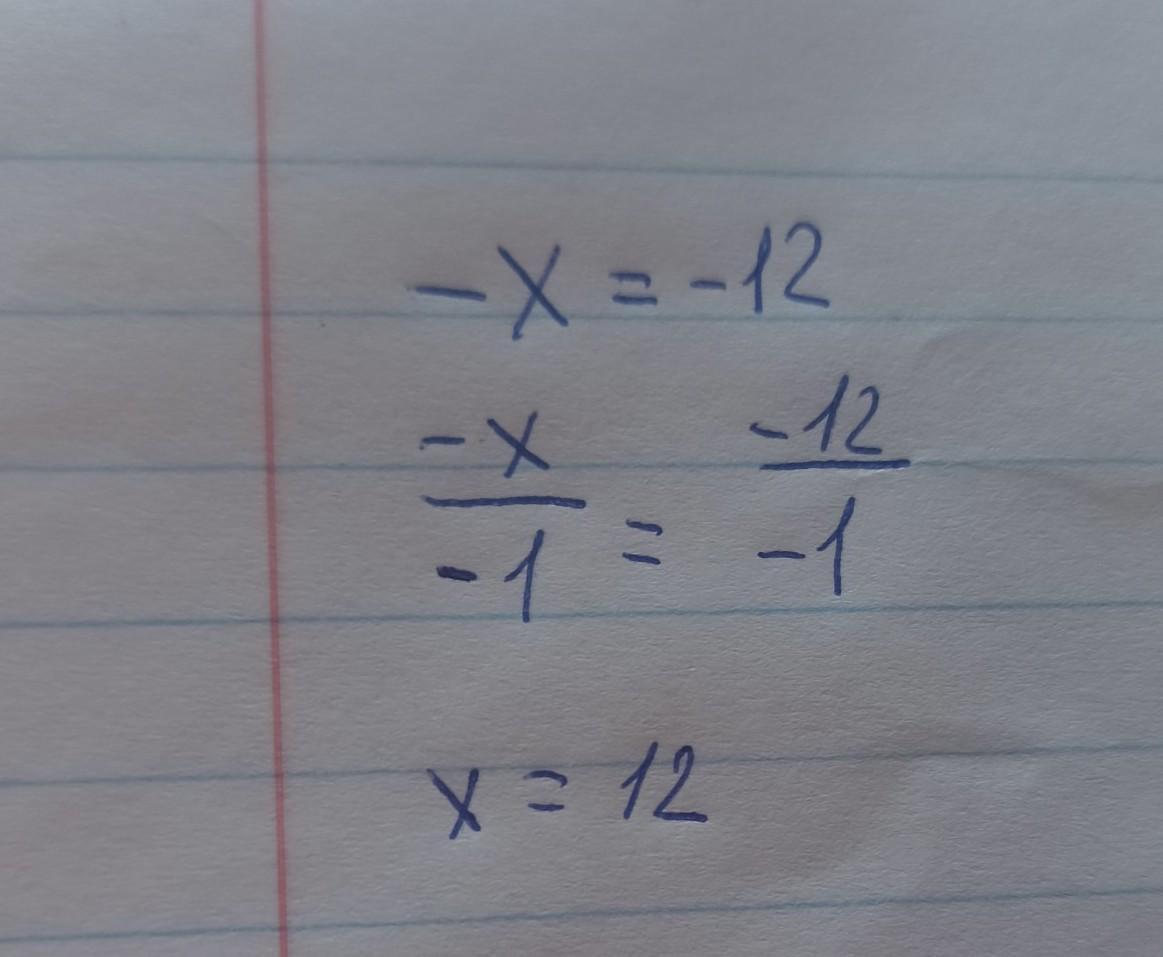 -x = -12
-x/-1 = -12/-1
x = 12